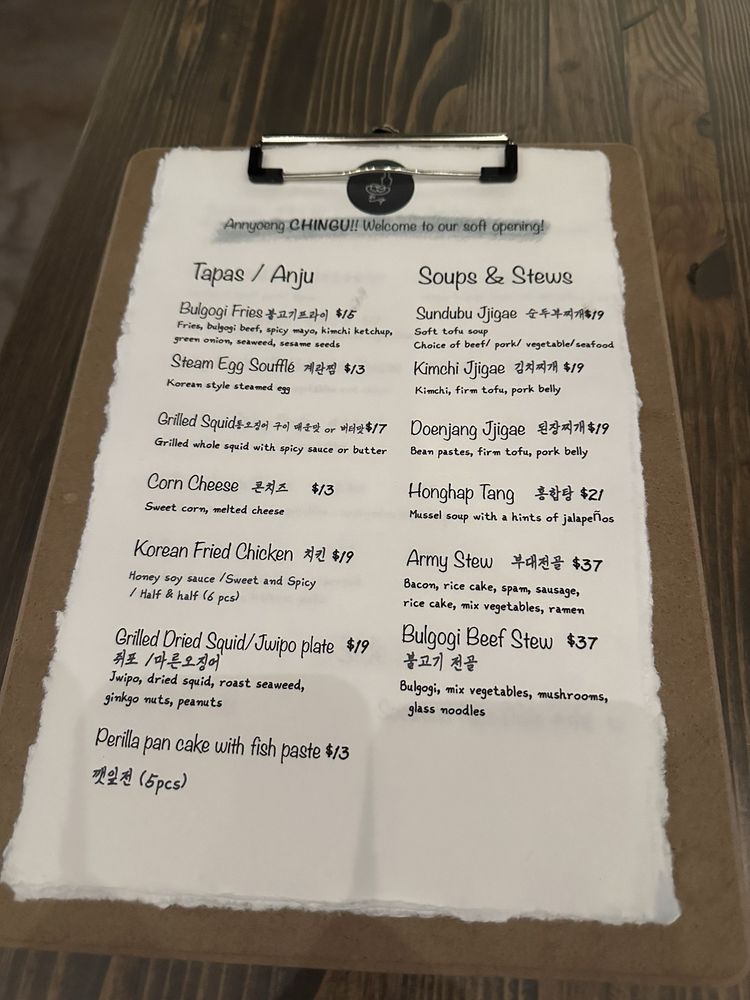 Annyoeng CHINGU!! Welcome to our soft opening!
Tapas / Anju
Bulgogi Fries 불고기프라이 $15
Fries, bulgogi beef, spicy mayo, kimchi ketchup,
green onion, seaweed, sesame seeds
Steam Egg Soufflé 계란찜 $13
Korean style steamed egg
Grilled Squid통오징어 구이 매운맛 or 버터맛$17
Grilled whole squid with spicy sauce or butter
Corn Cheese 콘치즈 $13
Sweet corn, melted cheese
Korean Fried Chicken 치킨 $19
Honey soy sauce /Sweet and Spicy
/ Half & half (6 pcs)
Grilled Dried Squid/Jwipo plate $19
쥐포 /마른오징어
Jwipo, dried squid, roast seaweed,
ginkgo nuts, peanuts
Perilla pan cake with fish paste $13
깻잎전 (5pcs)
Soups & Stews
Sundubu Jjigae 순두부찌개$19
Soft tofu soup
Choice of beef/ pork/ vegetable/seafood
Kimchi Jjigae 김치찌개 $19
Kimchi, firm tofu, pork belly
Doenjang Jjigae 된장찌개$19
Bean pastes, firm tofu, pork belly
Honghap Tang 홍합탕 $21
Mussel soup with a hints of jalapeños
Army Stew 부대전골 $37
Bacon, rice cake, spam, sausage,
rice cake, mix vegetables, ramen
Bulgogi Beef Stew $37
불고기 전골
Bulgogi, mix vegetables, mushrooms,
glass noodles